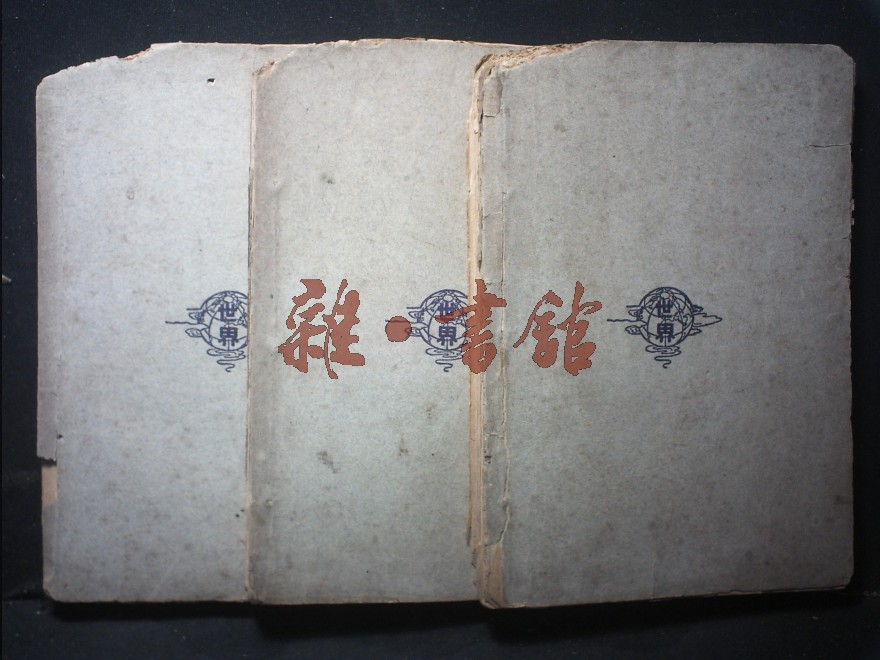 世界
世界
雜·書館
世界